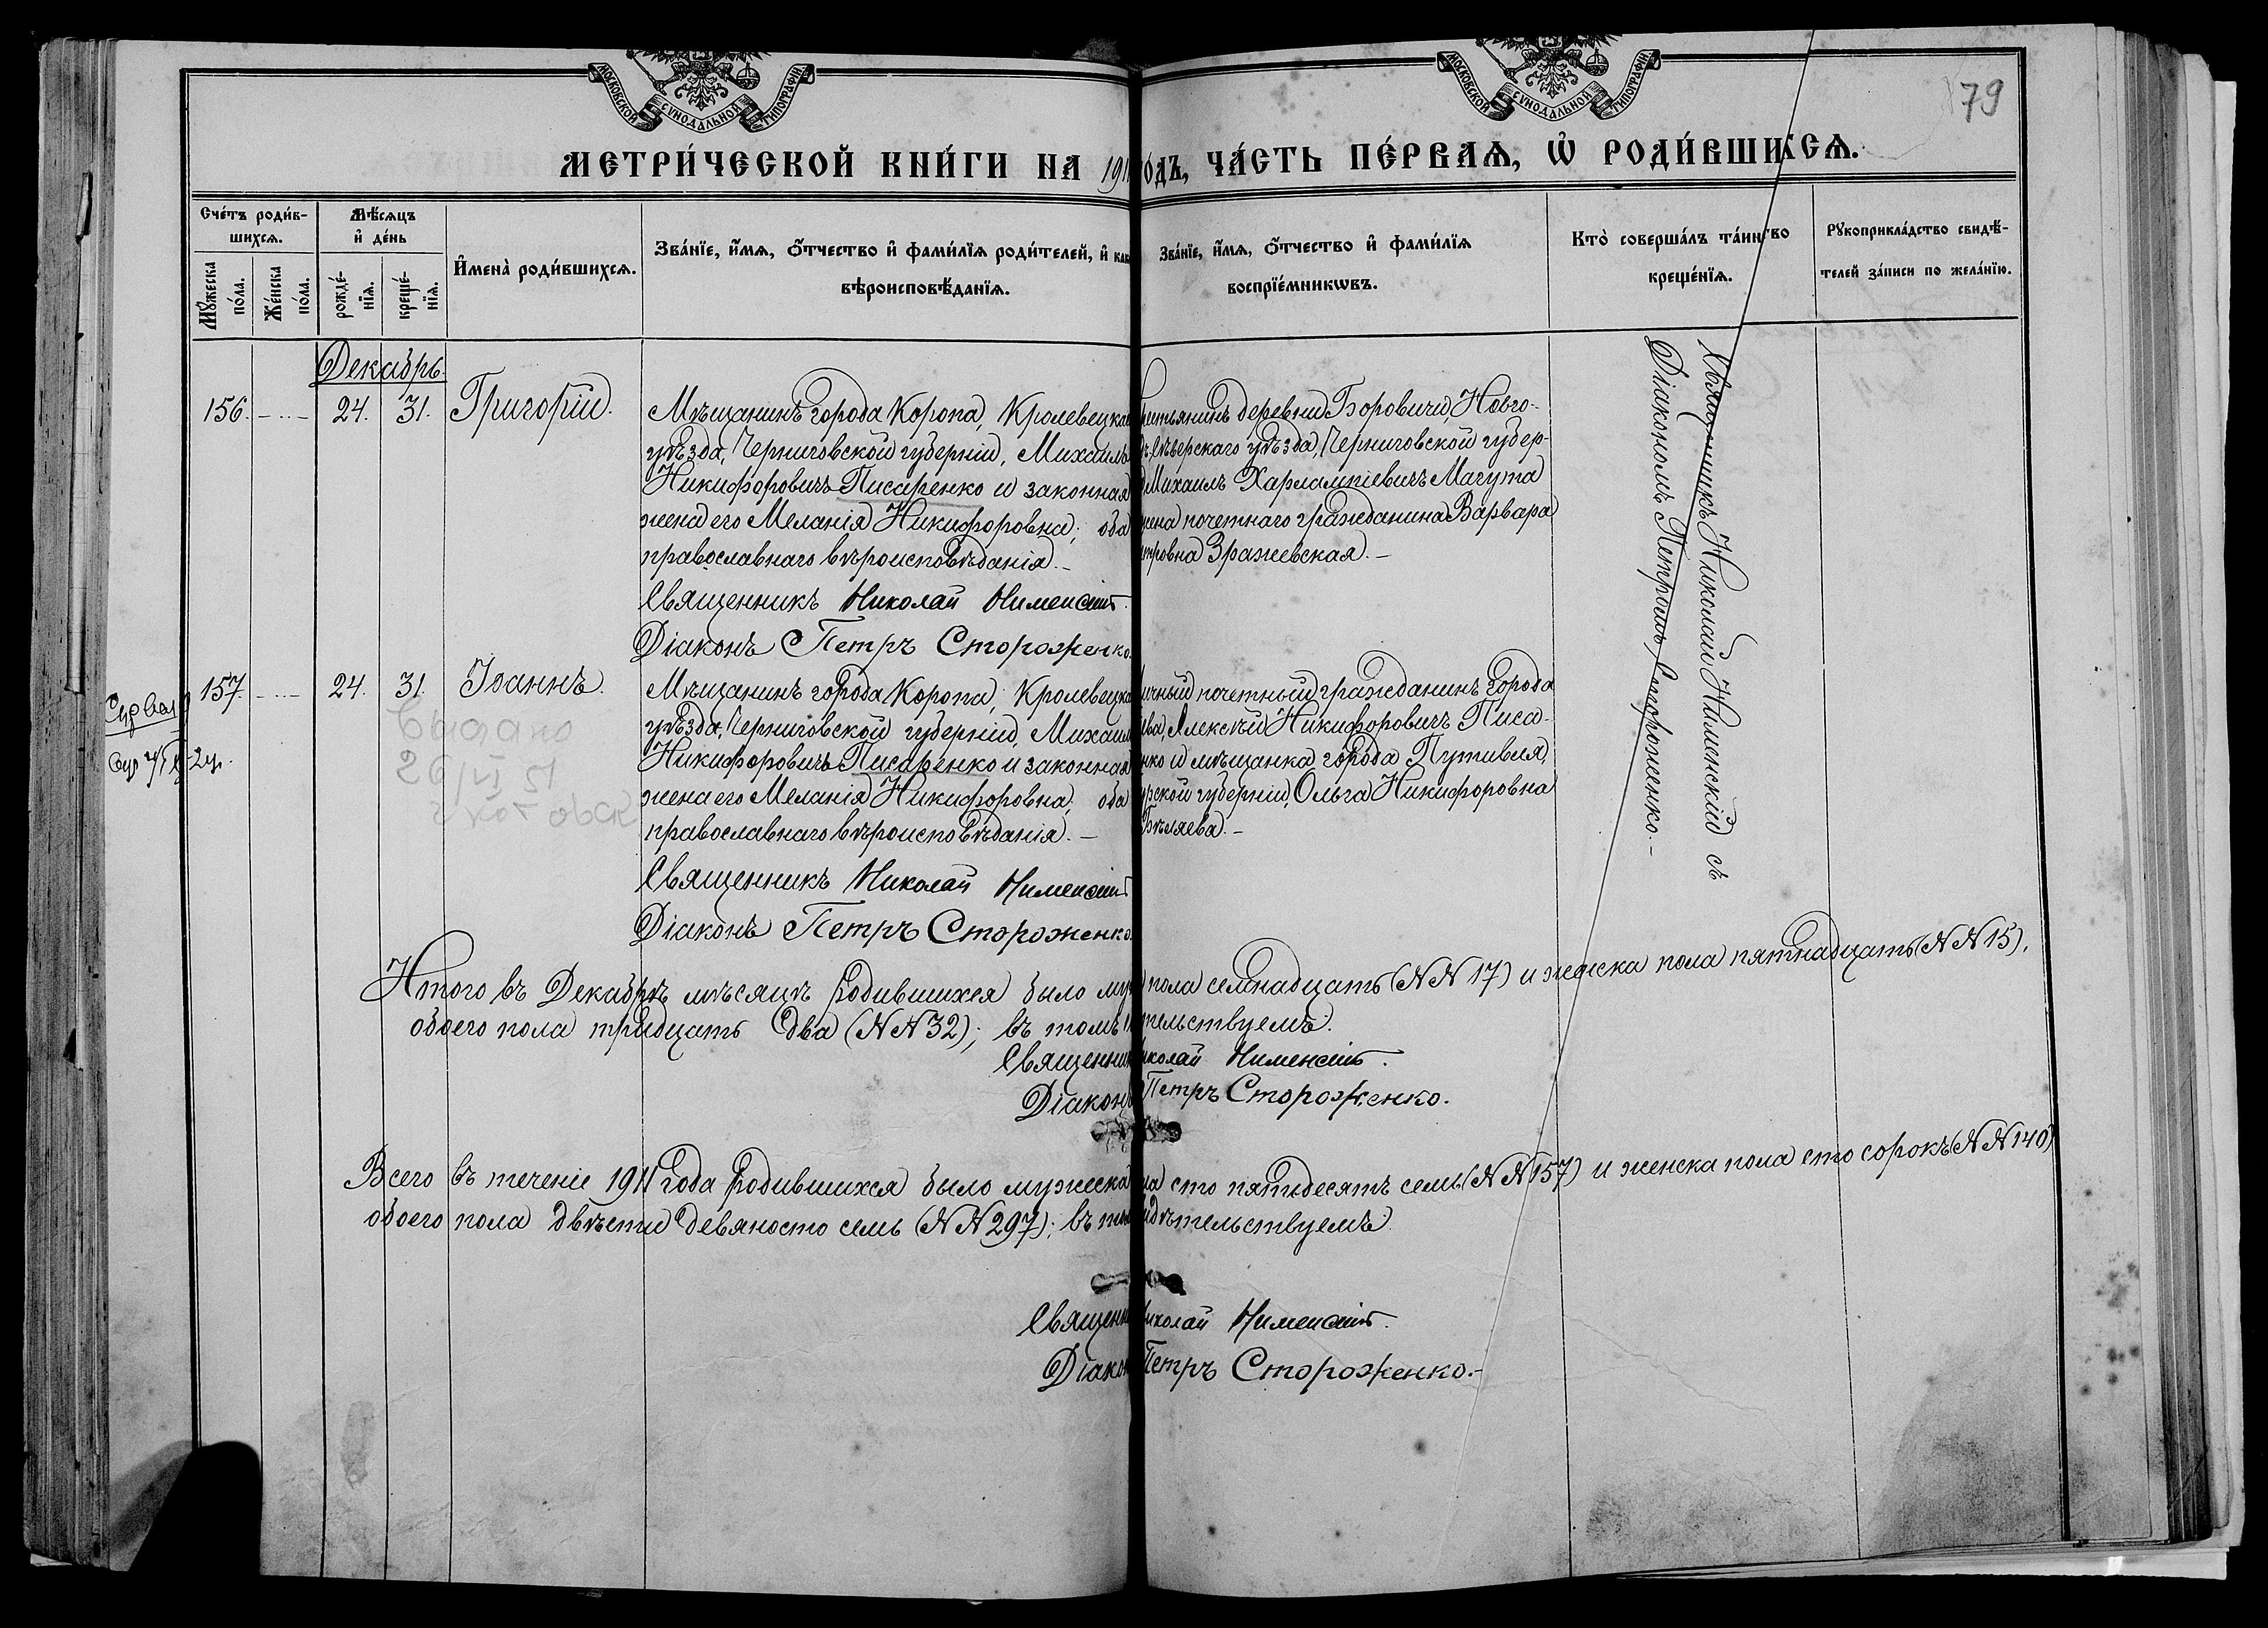 МОСКОВСКОЙ СѴНОДАЛЬНОЙ ТИПОГРАФІИ.
МОСКОВСКОЙ СѴНОДАЛЬНОЙ ТИПОГРАФІИ.
79
МЕТРИ́ЧЕСКОЙ КНИ́ГИ НА 191
о́дъ, ЧА́СТЬ ПЕ́РВАѦ, Ѡ҆ РОДИ́ВШИХСѦ.
Сче́тъ роди́в-
шихсѧ.
Мꙋ́жеска
по́ла.
Же́нска
по́ла.
Мѣ́сѧцъ
и҆ де́нь
рожде́-
нїѧ.
креще́-
нїѧ.
И҆мена̀ роди́вшихсѧ.
Зва́нїе, и҆́мѧ, ѻ҆́тчество и҆ фами́лїѧ роди́телей, и҆
вѣроисповѣ́данїѧ.
Зва́нїе, и҆́мѧ, ѻ҆́тчество и҆ фами́лїѧ
воспрїе́мникѡвъ.
Кто̀ соверша́лъ та́инство
креще́нїѧ.
Рꙋкоприкла́дство свидѣ́-
телей за́писи по жела́нїю.
Декабрь
156. — 24. 31. Григорій.
Мѣщанинъ города Коропа, Кролевецка
уѣзда, Черниговской губерніи, Михаилъ
Никифоровичъ Писаренко и законная
жена его Меланія Никифоровна; оба
православнаго вѣроисповѣданія. –
Священникъ Николай Нименскій.
Діаконъ Петръ Стороженко.
рестьянинъ деревни Боровичи, Новго-
Сѣверскаго уѣзда, Черниговской губер-
Михаилъ Харлампіевичъ Магута
жена почетнаго гражданина Варвара
тровна Зражевская. –
Священникъ Николай Нименскій съ
Діакономъ Петромъ Стороженко. –
157. — 24. 31. Іоаннъ.
Мѣщанинъ города Коропа, Кролевецка
уѣзда, Черниговской губерніи, Михаил
Никифоровичъ Писаренко и законная
жена его Меланія Никифоровна; оба
православнаго вѣроисповѣданія. –
Священникъ Николай Нименскій
Діаконъ Петръ Стороженко.
ичный почетный гражданинъ города
Алексѣй Никифоровичъ Писа-
нко и мѣщанка города Путивля,
рской губерніи, Ольга Никифоровна
Бѣляева. –
Видано
26/VI 51
Итого въ Декабрѣ мѣсяцѣ родившихся было му
пола семнадцать (NN 17) и женска пола пятнадцать (NN 15),
обоего пола тридцать два (NN 32); въ томъ
тельствуемъ.
Священник
иколай Нименскій.
Діаконъ
Петръ Стороженко.
Всего въ теченіе 1911 года родившихся было мужеска
ла сто пятьдесятъ семь (NN 157) и женска пола сто сорокъ (NN 140)
обоего пола двѣсти девяносто семь (NN 297); въ том
идѣтельствуемъ.
Священн
иколай Нименскій.
Діакон
Петръ Стороженко. –